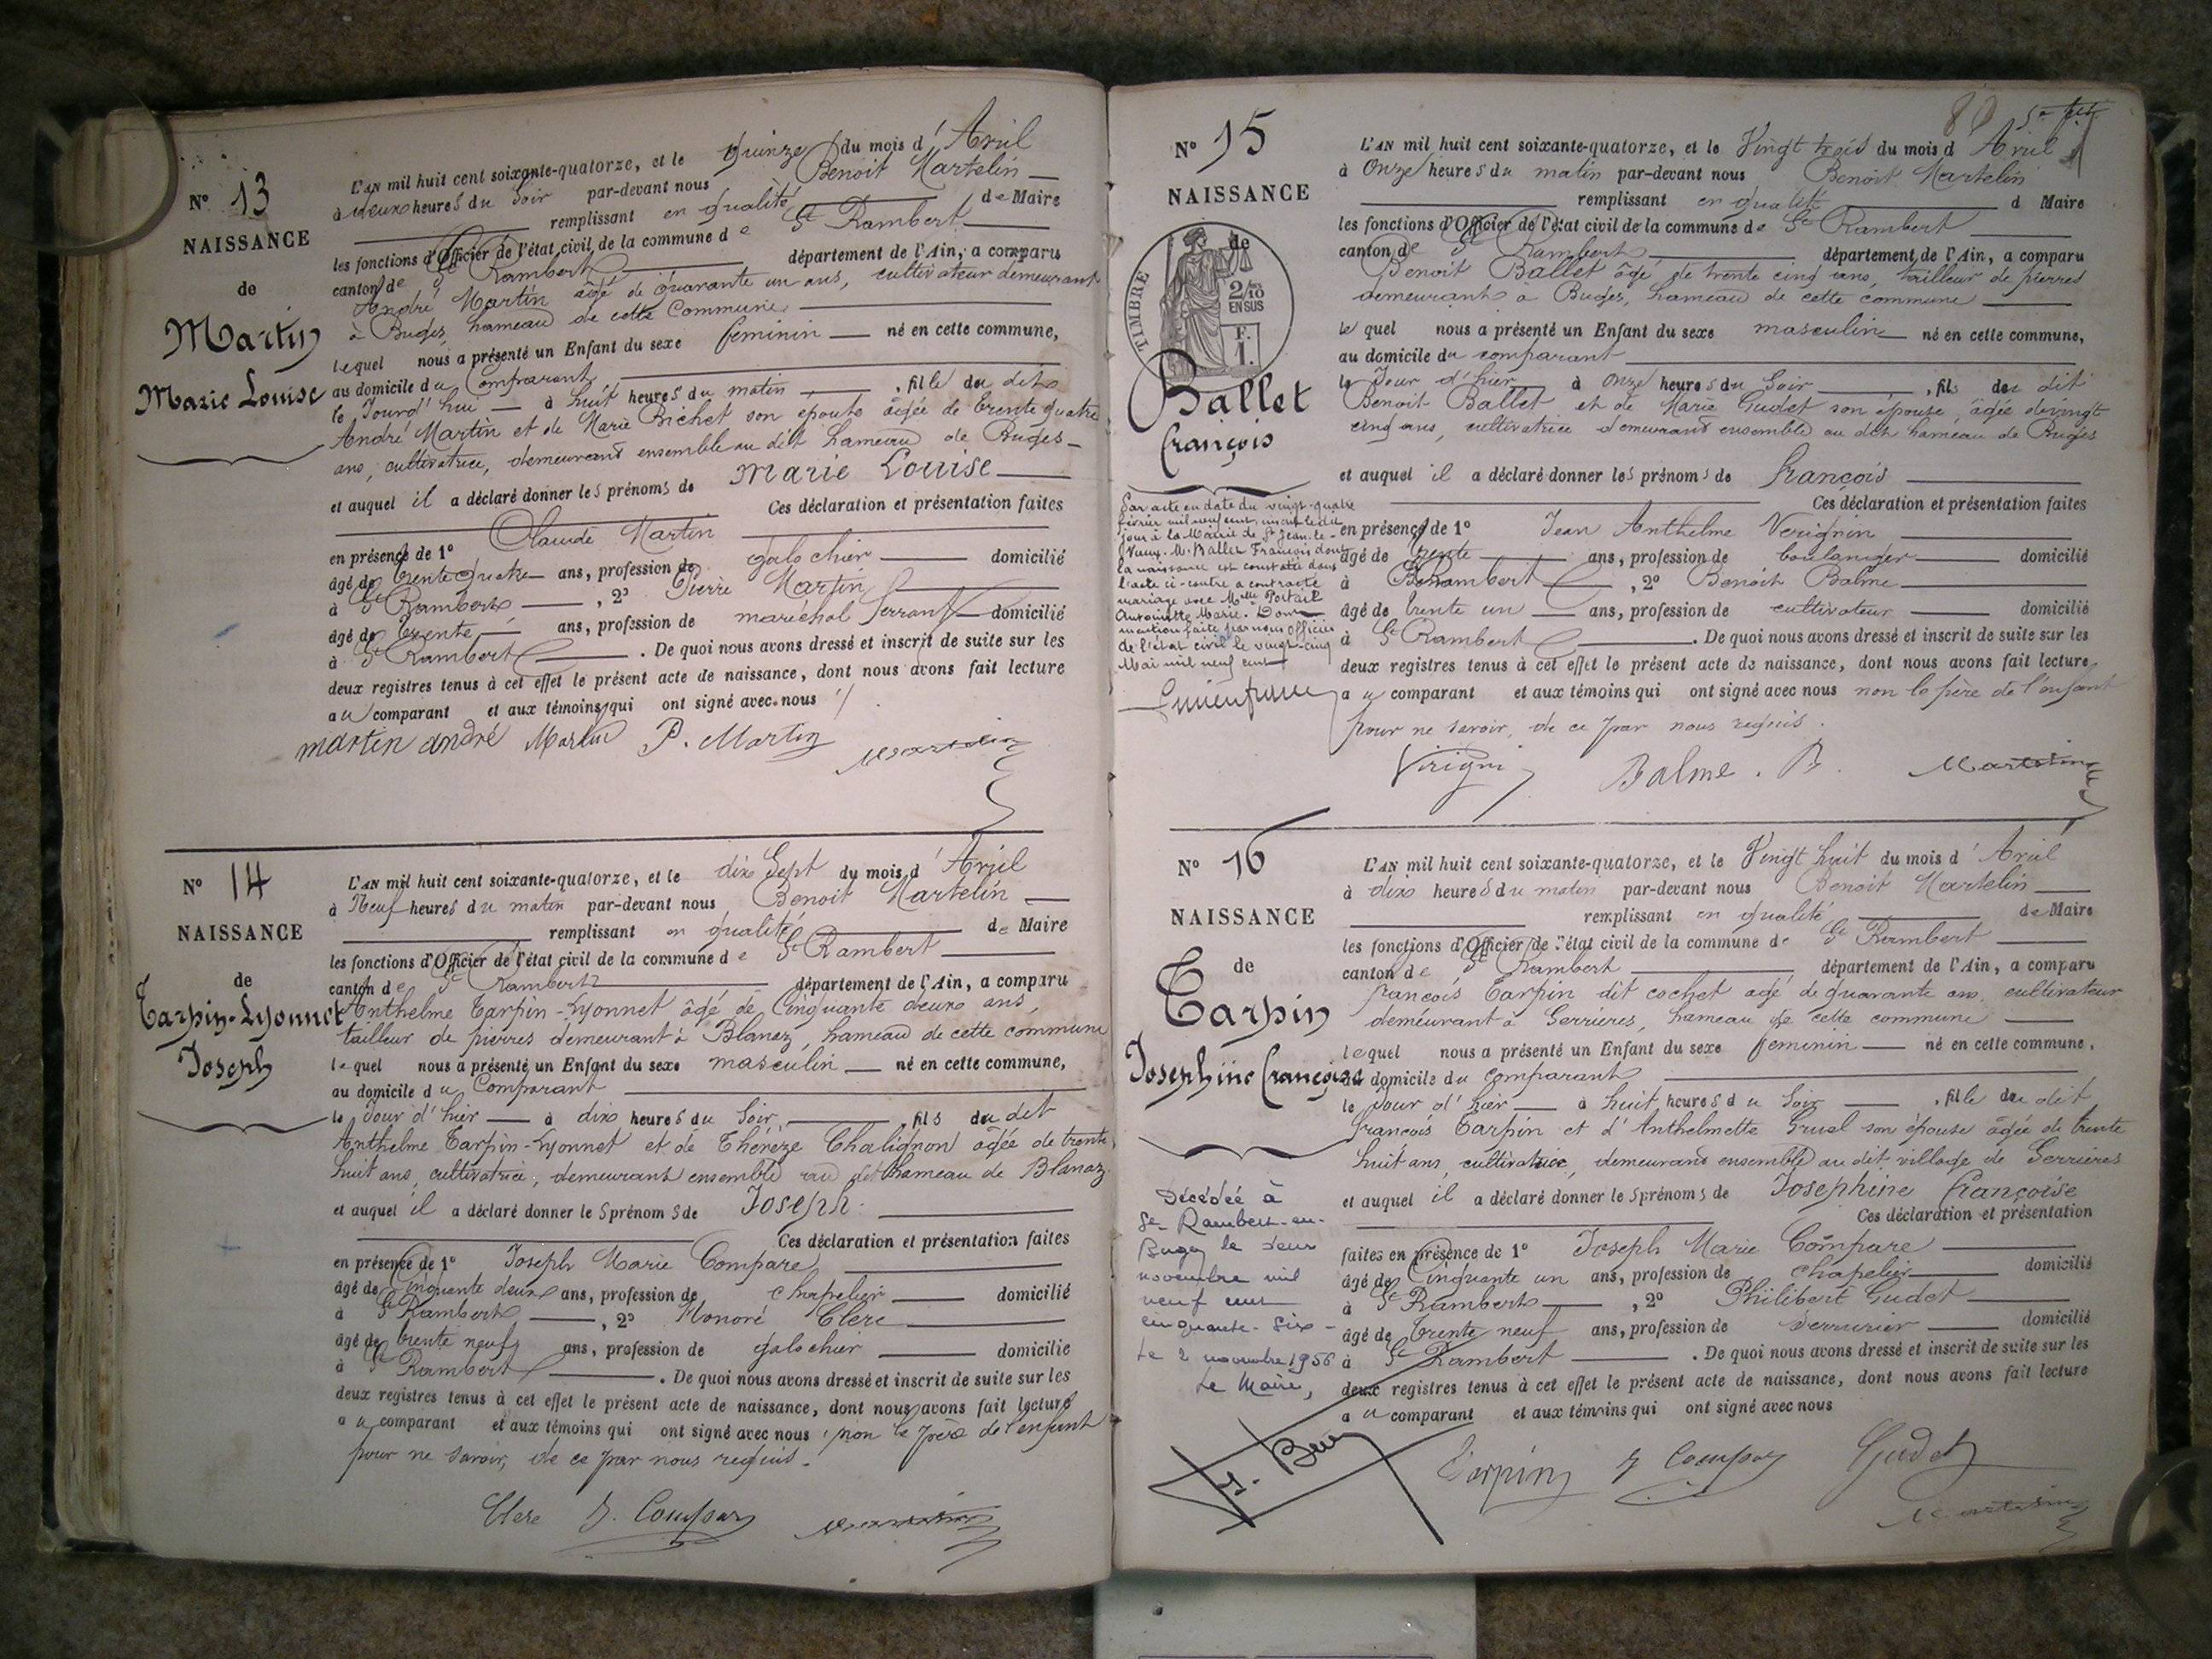 N° 13
NAISSANCE
de
Martin
Marie Louise
L'AN mil huit cent soixante-quatorze, et le Quinze du mois d'Avril
à deux heures du Soir par-devant nous Benoit Martelin
remplissant en qualité de Maire
les fonctions d'Officier de l'état civil de la commune de St Rambert
canton de St Rambert département de l'Ain, a comparu
André Martin âgé de quarante un ans, cultivateur demeurant
à Buges, hameau de cette Commune
lequel nous a présenté un Enfant du sexe feminin né en cette commune,
au domicile du Comparant
le Jourd'hui à huit heures du matin, fille du dit
André Martin et de Marie Bichet son épouse âgée de trente quatre
ans, cultivatrice, demeurant ensemble au dit hameau de Buges
et auquel il a déclaré donner les prénoms de Marie Louise
Ces déclaration et présentation faites
en présence de 1° Claude Martin
âgé de trente quatre ans, profession de galochier domicilié
à St Rambert, 2° Pierre Martin
âgé de trente ans, profession de maréchal ferrant domicilié
à St Rambert. De quoi nous avons dressé et inscrit de suite sur les
deux registres tenus à cet effet le présent acte de naissance, dont nous avons fait lecture
au comparant et aux témoins qui ont signé avec nous
martin andré Martin P. Martin Martelin
N° 14
NAISSANCE
de
Tarpin-Lyonnet
Joseph
L'AN mil huit cent soixante-quatorze, et le dix Sept du mois d'Avril
à Neuf heures du matin par-devant nous Benoit Martelin
remplissant en qualité de Maire
les fonctions d'Officier de l'état civil de la commune de St Rambert
canton de St Rambert département de l'Ain, a comparu
Anthelme Tarpin-Lyonnet âgé de Cinquante deux ans,
tailleur de pierres demeurant à Blanaz, hameau de cette commune
lequel nous a présenté un Enfant du sexe masculin né en cette commune,
au domicile du Comparant
le Jour d'hier à dix heures du Soir, fils du dit
Anthelme Tarpin-Lyonnet et de Thérèze Chalignon âgée de trente
huit ans, cultivatrice, demeurant ensemble au dit hameau de Blanaz
et auquel il a déclaré donner les prénoms de Joseph
Ces déclaration et présentation faites
en présence de 1° Joseph Marie Compare
âgé de Cinquante deux ans, profession de chapelier domicilié
à St Rambert, 2° Honoré Clerc
âgé de trente neuf ans, profession de galochier domicilié
à St Rambert. De quoi nous avons dressé et inscrit de suite sur les
deux registres tenus à cet effet le présent acte de naissance, dont nous avons fait lecture
au comparant et aux témoins qui ont signé avec nous, non le père de l'enfant
pour ne savoir, de ce par nous requis.
Clerc J. Compare Martelin
80
N° 15
NAISSANCE
de
TIMBRE
2/10
EN SUS
F.
1.
Ballet
françois
Par acte en date du vingt-quatre
février mil neuf cent, inscrit le dit
jour à la Mairie de St Jean-le-
Vieux, M. Ballet François dont
la naissance est constatée dans
l'acte ci-contre a contracté
mariage avec Melle Portail
Antoinette Marie. Dont
mention faite par nous Officier
de l'état civil le vingt-cinq
Mai mil neuf cent
L'AN mil huit cent soixante-quatorze, et le Vingt trois du mois d'Avril
à Onze heures du matin par-devant nous Benoit Martelin
remplissant en qualité d Maire
les fonctions d'Officier de l'état civil de la commune de St Rambert
canton de St Rambert département de l'Ain, a comparu
Benoit Ballet âgé de trente cinq ans, tailleur de pierres
demeurant à Buges, hameau de cette commune
lequel nous a présenté un Enfant du sexe masculin né en cette commune,
au domicile du comparant
le Jour d'hier à Onze heures du Soir, fils du dit
Benoit Ballet et de Marie Gudet son épouse, âgée de vingt
cinq ans, cultivatrice demeurant ensemble au dit hameau de Buges
et auquel il a déclaré donner les prénoms de françois
Ces déclaration et présentation faites
en présence de 1° Jean Anthelme Verignin
âgé de trente ans, profession de boulanger domicilié
à St Rambert, 2° Benoit Balme
âgé de trente un ans, profession de cultivateur domicilié
à St Rambert. De quoi nous avons dressé et inscrit de suite sur les
deux registres tenus à cet effet le présent acte de naissance, dont nous avons fait lecture
au comparant et aux témoins qui ont signé avec nous non le père de l'enfant
pour ne savoir, de ce par nous requis.
Virigni Balme. B. Martelin
N° 16
NAISSANCE
de
Tarpin
Josephine françoise
Décédée à
St Rambert-en-
Bugey le deux
novembre mil
neuf cent
cinquante-six
Le 2 novembre 1956
Le Maire,
L'AN mil huit cent soixante-quatorze, et le Vingt huit du mois d'Avril
à dix heures du matin par-devant nous Benoit Martelin
remplissant en qualité de Maire
les fonctions d'Officier de l'état civil de la commune de St Rambert
canton de St Rambert département de l'Ain, a comparu
françois Tarpin dit cochet âgé de quarante ans, cultivateur
demeurant à Serrieres, hameau de cette commune
lequel nous a présenté un Enfant du sexe feminin né en cette commune,
au domicile du comparant
le Jour d'hier à huit heures du Soir, fille du dit
françois Tarpin et d'Anthelmette Grusl son épouse âgée de trente
huit ans, cultivatrice, demeurant ensemble au dit village de Serrières
et auquel il a déclaré donner les prénoms de Josephine françoise
Ces déclaration et présentation
faites en présence de 1° Joseph Marie Compare
âgé de Cinquante un ans, profession de chapelier domicilié
à St Rambert, 2° Philibert Gudet
âgé de trente neuf ans, profession de serrurier domicilié
à St Rambert. De quoi nous avons dressé et inscrit de suite sur les
deux registres tenus à cet effet le présent acte de naissance, dont nous avons fait lecture
au comparant et aux témoins qui ont signé avec nous
Tarpin J Compare Gudet
Martelin